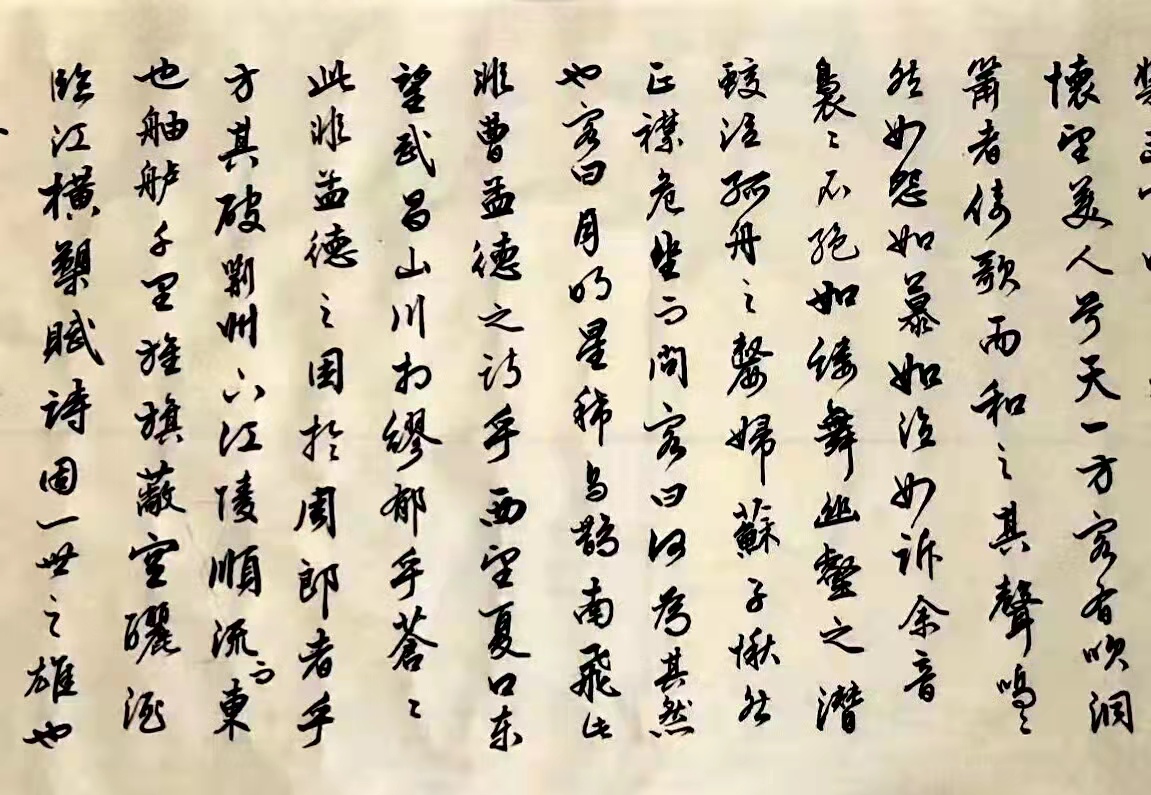 懷望美人兮天一方客有吹洞
簫者倚歌而和之其聲嗚〻
然如怨如慕如泣如诉余音
裊〻不絕如缕舞幽壑之潛
蛟泣孤舟之嫠婦蘇子愀然
正襟危坐而問客曰何為其然
也客曰月明星稀烏鵲南飛此
非曹孟德之诗乎西望夏口东
望武昌山川相繆郁乎蒼〻
此非孟德之困於周郎者乎
方其破荆州下江陵順流而東
也舳舻千里旌旗蔽空釃酒
臨江橫槊賦诗固一世之雄也